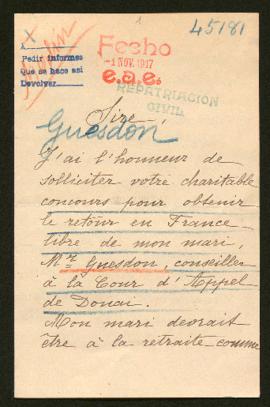 X
45181
A
Pedir informes
Que se hace así
Devolver
Fecho
-1 NOV. 1917
e.a.e.
REPATRIACIÓN
CIVIL
Sire,
Guesdon
J'ai l'honneur de
solliciter votre charitable
concours pour obtenir
le retour en France
libre de mon mari,
Mr Guesdon, conseiller
à la Cour d'Appel
de Douai.
Mon mari devrait
être à la retraite comme